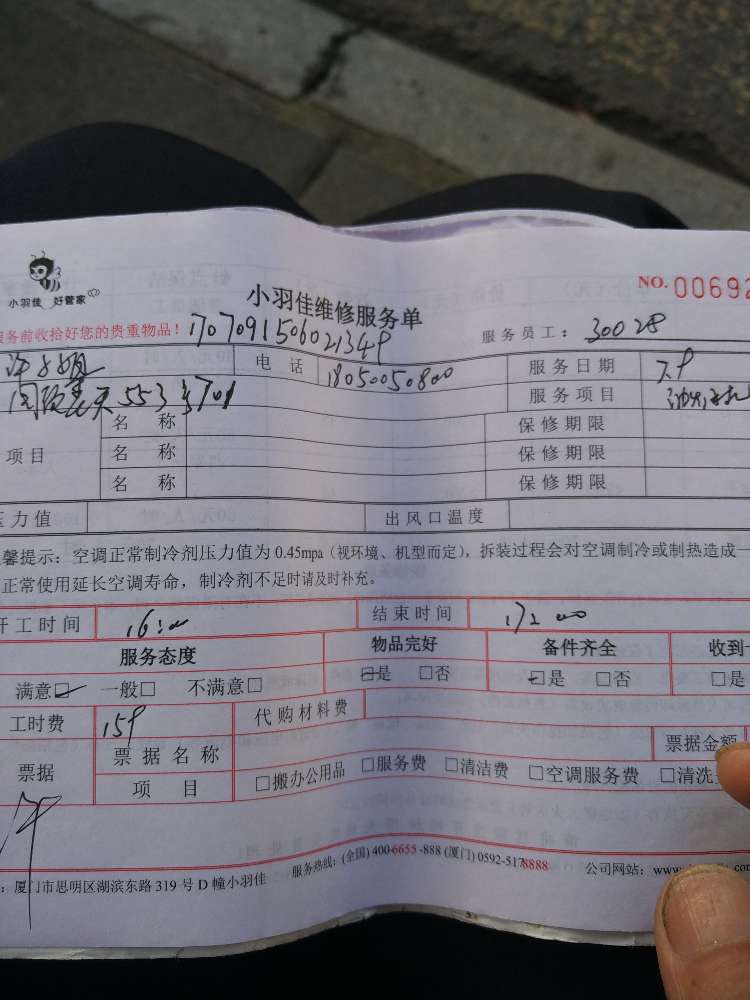 小羽佳 好管家
小羽佳维修服务单
NO. 00692
服务前收拾好您的贵重物品！1707091506021349
服务员工：30028
电话 18050050800 服务日期 7.9
553 701 服务项目
项目 名称 保修期限
名称 保修期限
名称 保修期限
压力值 出风口温度
馨提示：空调正常制冷剂压力值为0.45mpa（视环境、机型而定），拆装过程会对空调制冷或制热造成一
正常使用延长空调寿命，制冷剂不足时请及时补充。
开工时间 16:00 结束时间 17:00
服务态度 物品完好 备件齐全 收到
满意□ 一般□ 不满意□ □是 □否 □是 □否 □是
工时费 159 代购材料费
票据 票据名称 票据金额
项目 □搬办公用品 □服务费 □清洁费 □空调服务费 □清洗
许
：厦门市思明区湖滨东路319号D幢小羽佳 服务热线：(全国) 400-6655-888 (厦门) 0592-5178888 公司网站：www.